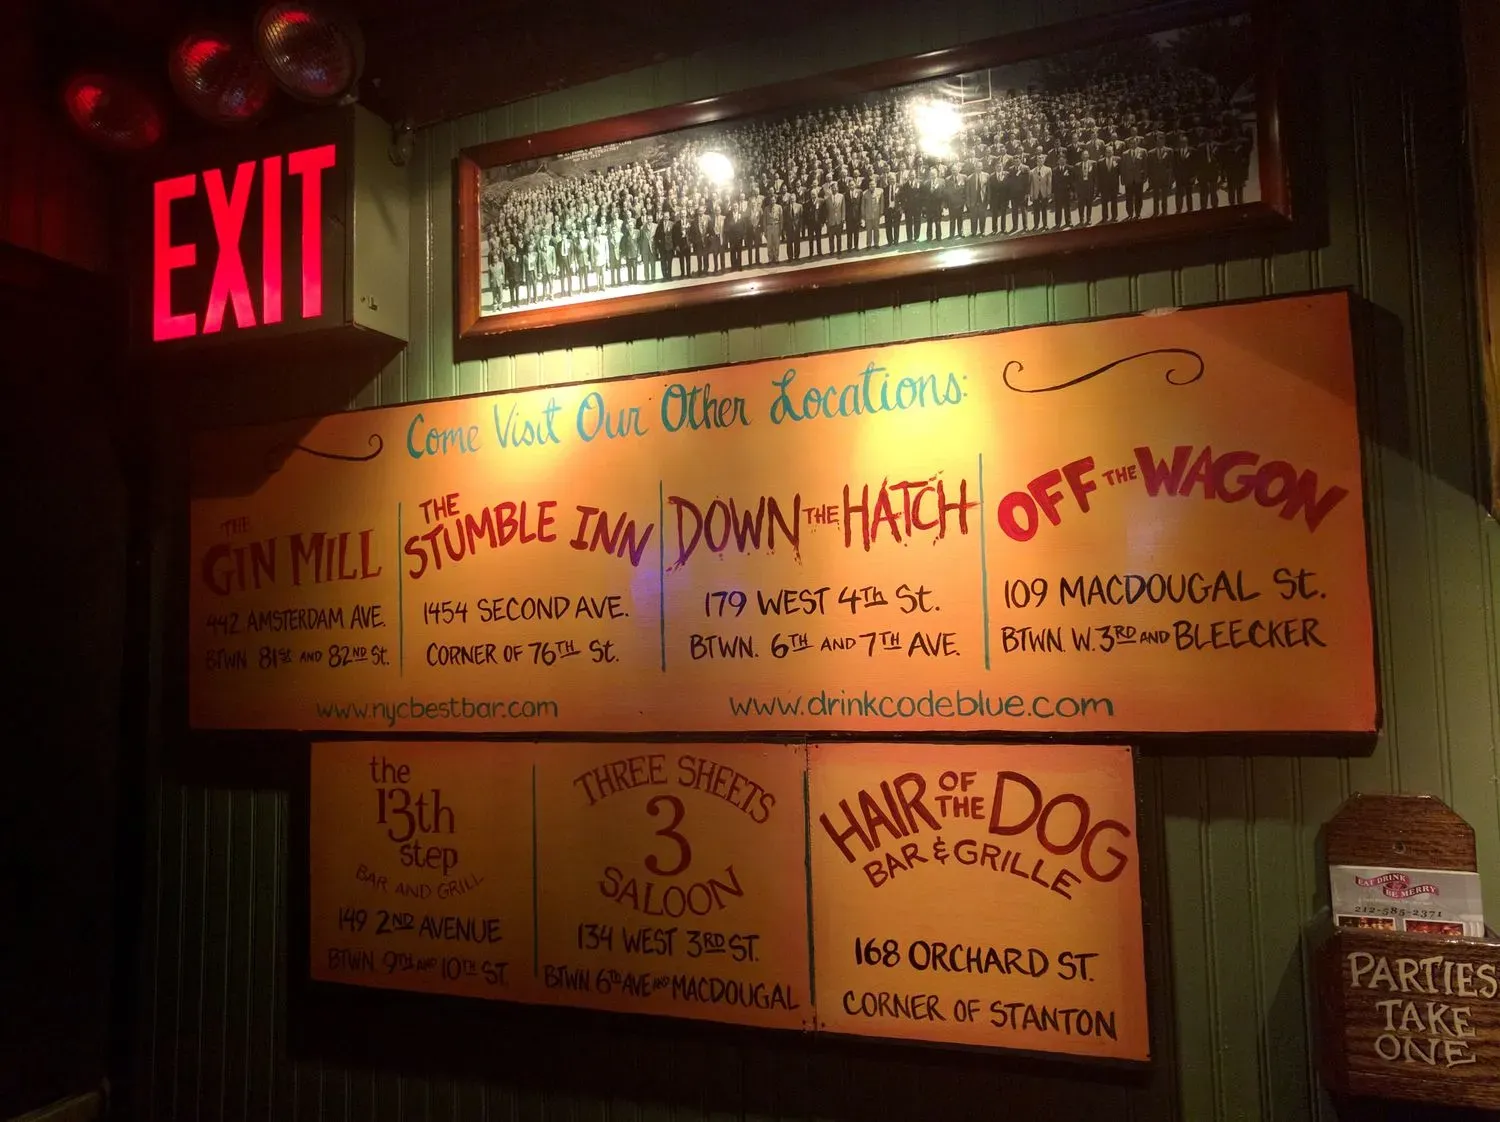 EXIT
Come Visit Our Other Locations:
THE
GIN MILL
442 AMSTERDAM AVE.
BTWN 81st AND 82ND St.
THE
STUMBLE INN
1454 SECOND AVE.
CORNER OF 76TH St.
DOWN THE HATCH
179 WEST 4Th St.
BTWN. 6TH AND 7TH AVE.
OFF THE WAGON
109 MACDOUGAL St.
BTWN W. 3RD AND BLEECKER
www.nycbestbar.com
www.drinkcodeblue.com
the
13th
step
BAR AND GRILL
149 2ND AVENUE
BTWN 9TH AND 10TH ST.
THREE SHEETS
3
SALOON
134 WEST 3RD ST.
BTWN 6th AVE AND MACDOUGAL
HAIR OF THE DOG
BAR & GRILLE
168 ORCHARD ST.
CORNER OF STANTON
EAT DRINK
& BE MERRY
212-585-2371
PARTIES
TAKE
ONE